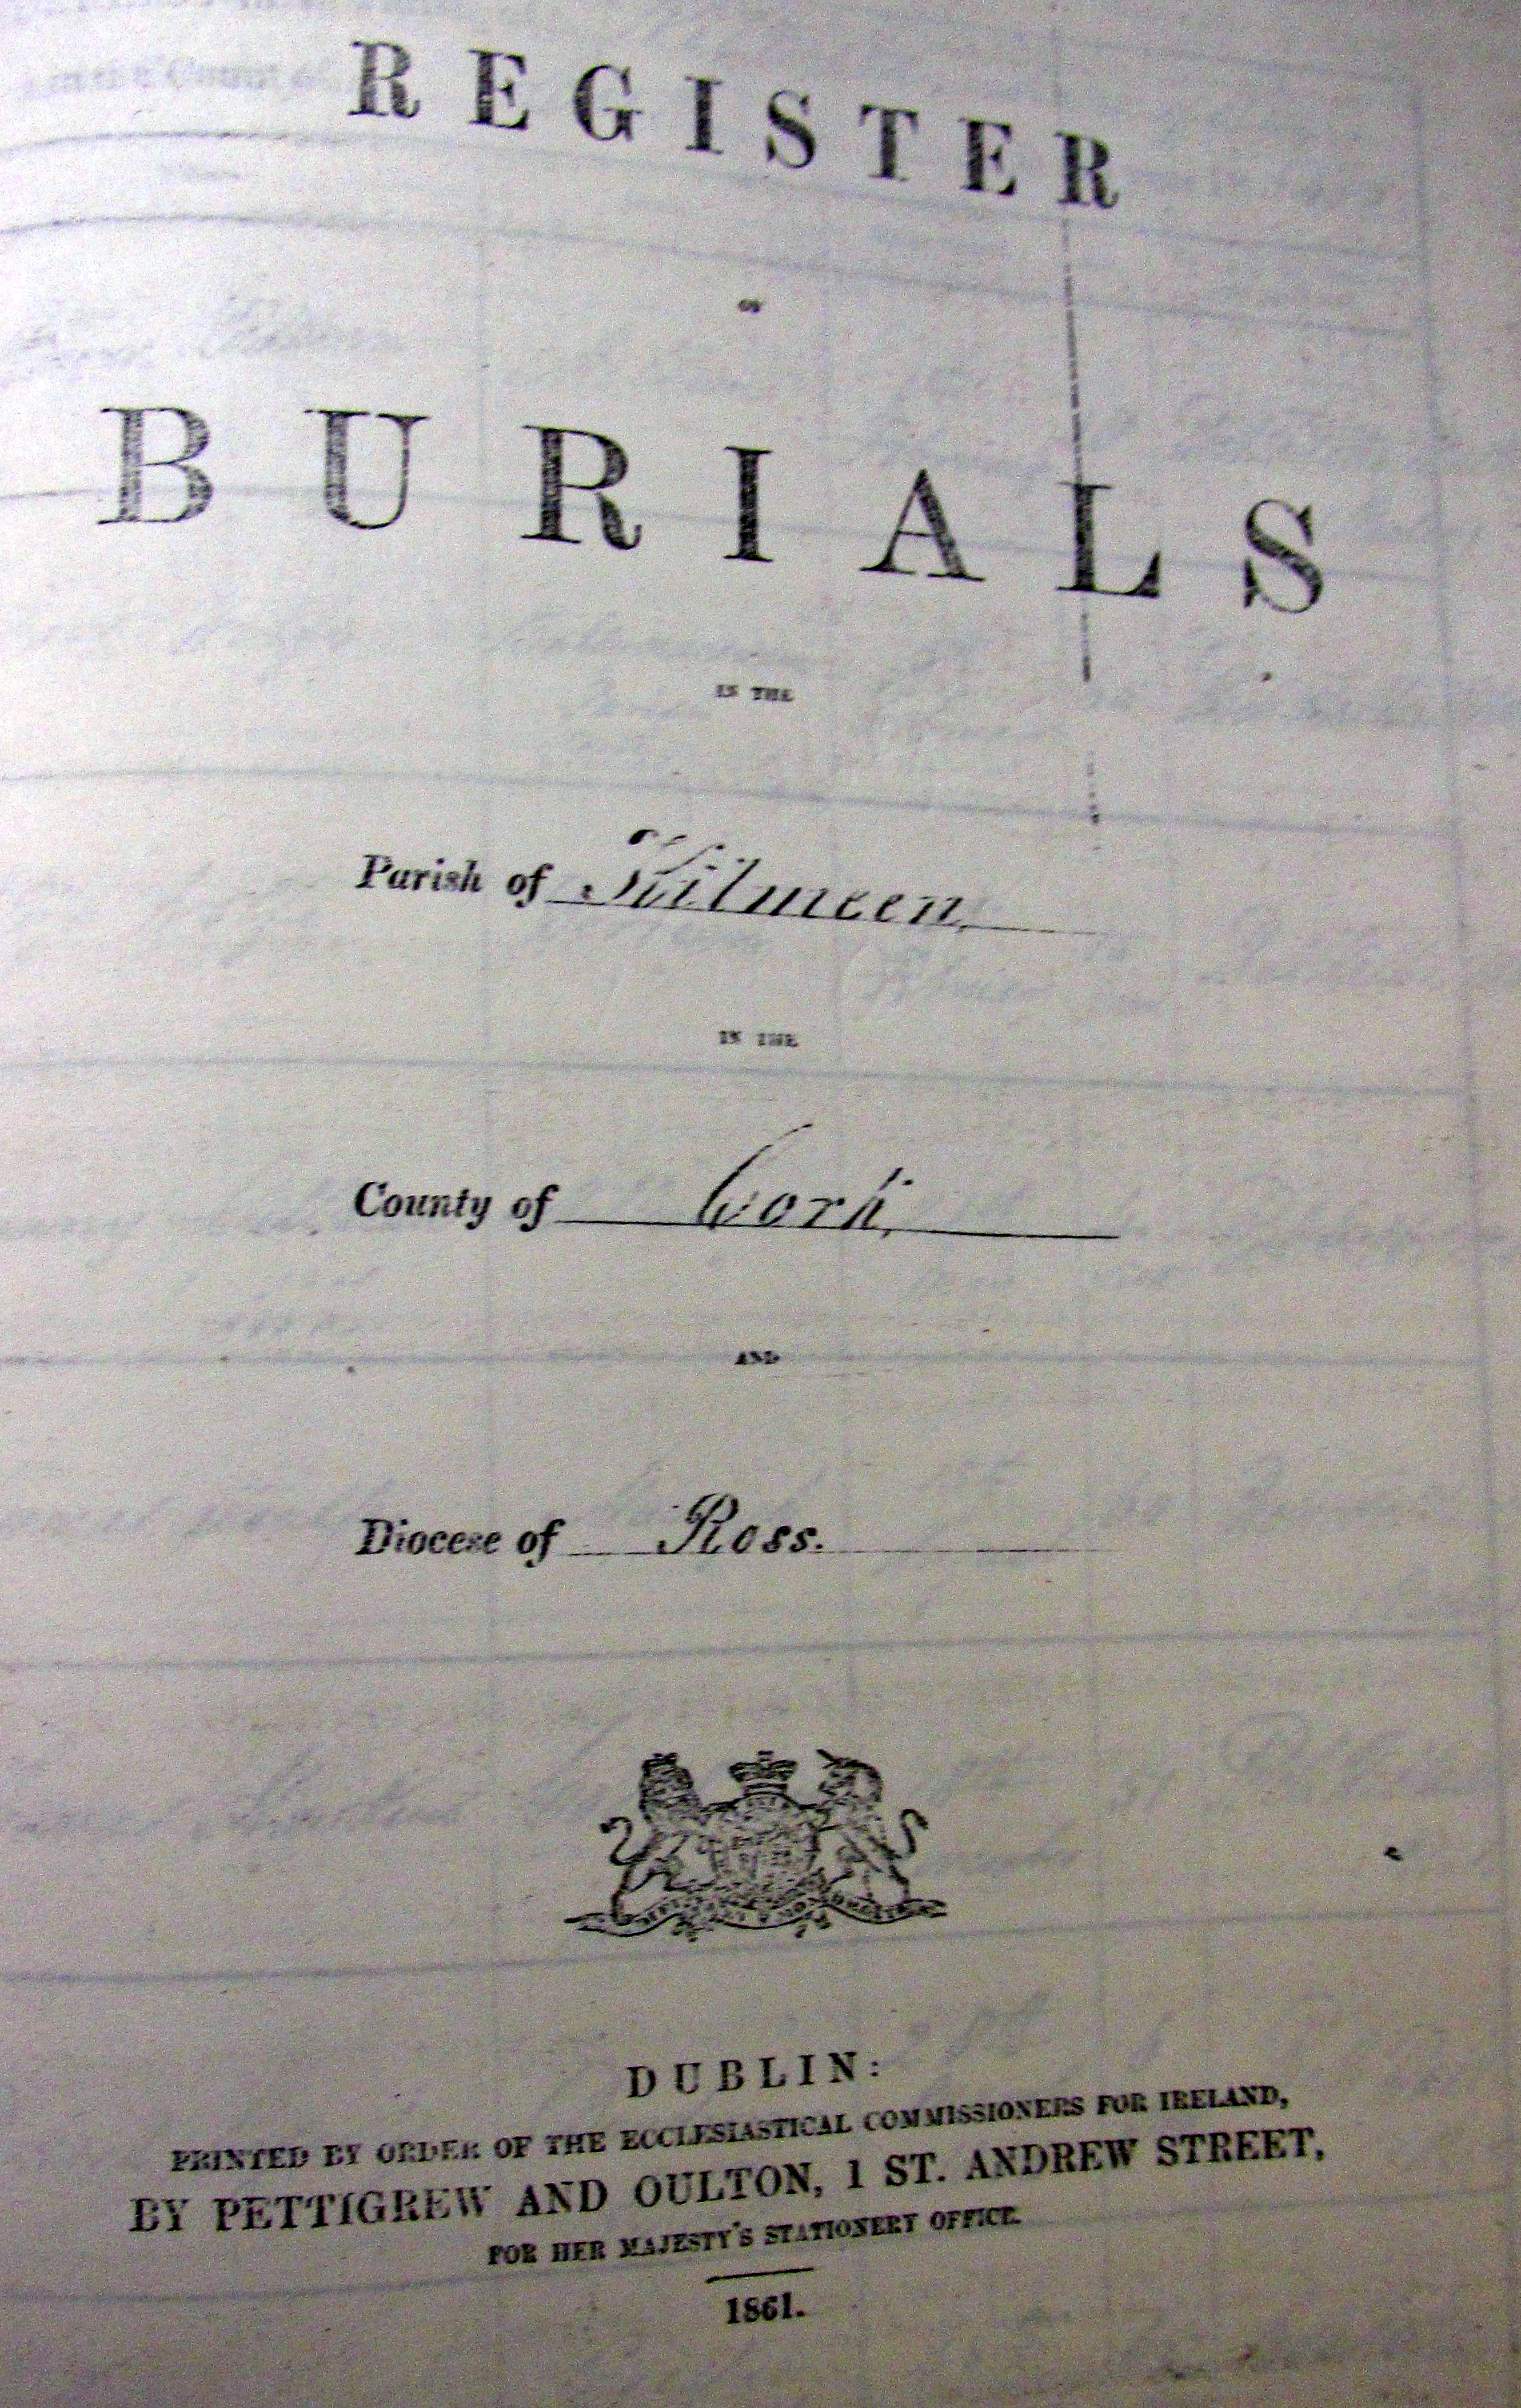 REGISTER
OF
BURIALS
IN THE
Parish of Kilmeen,
IN THE
County of Cork,
AND
Diocese of Ross.
DUBLIN:
PRINTED BY ORDER OF THE ECCLESIASTICAL COMMISSIONERS FOR IRELAND,
BY PETTIGREW AND OULTON, 1 ST. ANDREW STREET,
FOR HER MAJESTY'S STATIONERY OFFICE.
1861.